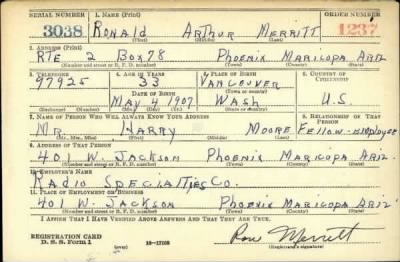 SERIAL NUMBER 1. NAME (Print) ORDER NUMBER
3038 RONALD ARTHUR MERRITT 1237
(First) (Middle) (Last)
2. ADDRESS (Print)
RTE 2 BOX 78 PHOENIX MARICOPA ARIZ
(Number and street or R. F. D. number) (Town) (County) (State)
3. TELEPHONE 4. AGE IN YEARS 5. PLACE OF BIRTH 6. COUNTRY OF CITIZENSHIP
97925 33 VANCOUVER
DATE OF BIRTH (Town or county)
MAY 4 1907 WASH U.S.
(Mo.) (Day) (Yr.) (State or country)
7. NAME OF PERSON WHO WILL ALWAYS KNOW YOUR ADDRESS 8. RELATIONSHIP OF THAT PERSON
MR. HARRY MOORE FELLOW-EMPLOYEE
(Mr., Mrs., Miss) (First) (Middle) (Last)
9. ADDRESS OF THAT PERSON
401 W. JACKSON PHOENIX MARICOPA ARIZ.
(Number and street or R. F. D. number) (Town) (County) (State)
10. EMPLOYER'S NAME
RADIO SPECIALTIES CO.
11. PLACE OF EMPLOYMENT OR BUSINESS
401 W. JACKSON PHOENIX MARICOPA ARIZ
(Number and street or R. F. D. number) (Town) (County) (State)
I AFFIRM THAT I HAVE VERIFIED ABOVE ANSWERS AND THAT THEY ARE TRUE.
REGISTRATION CARD
D. S. S. Form 1 16-17105 Ron Merritt
(Registrant's signature)